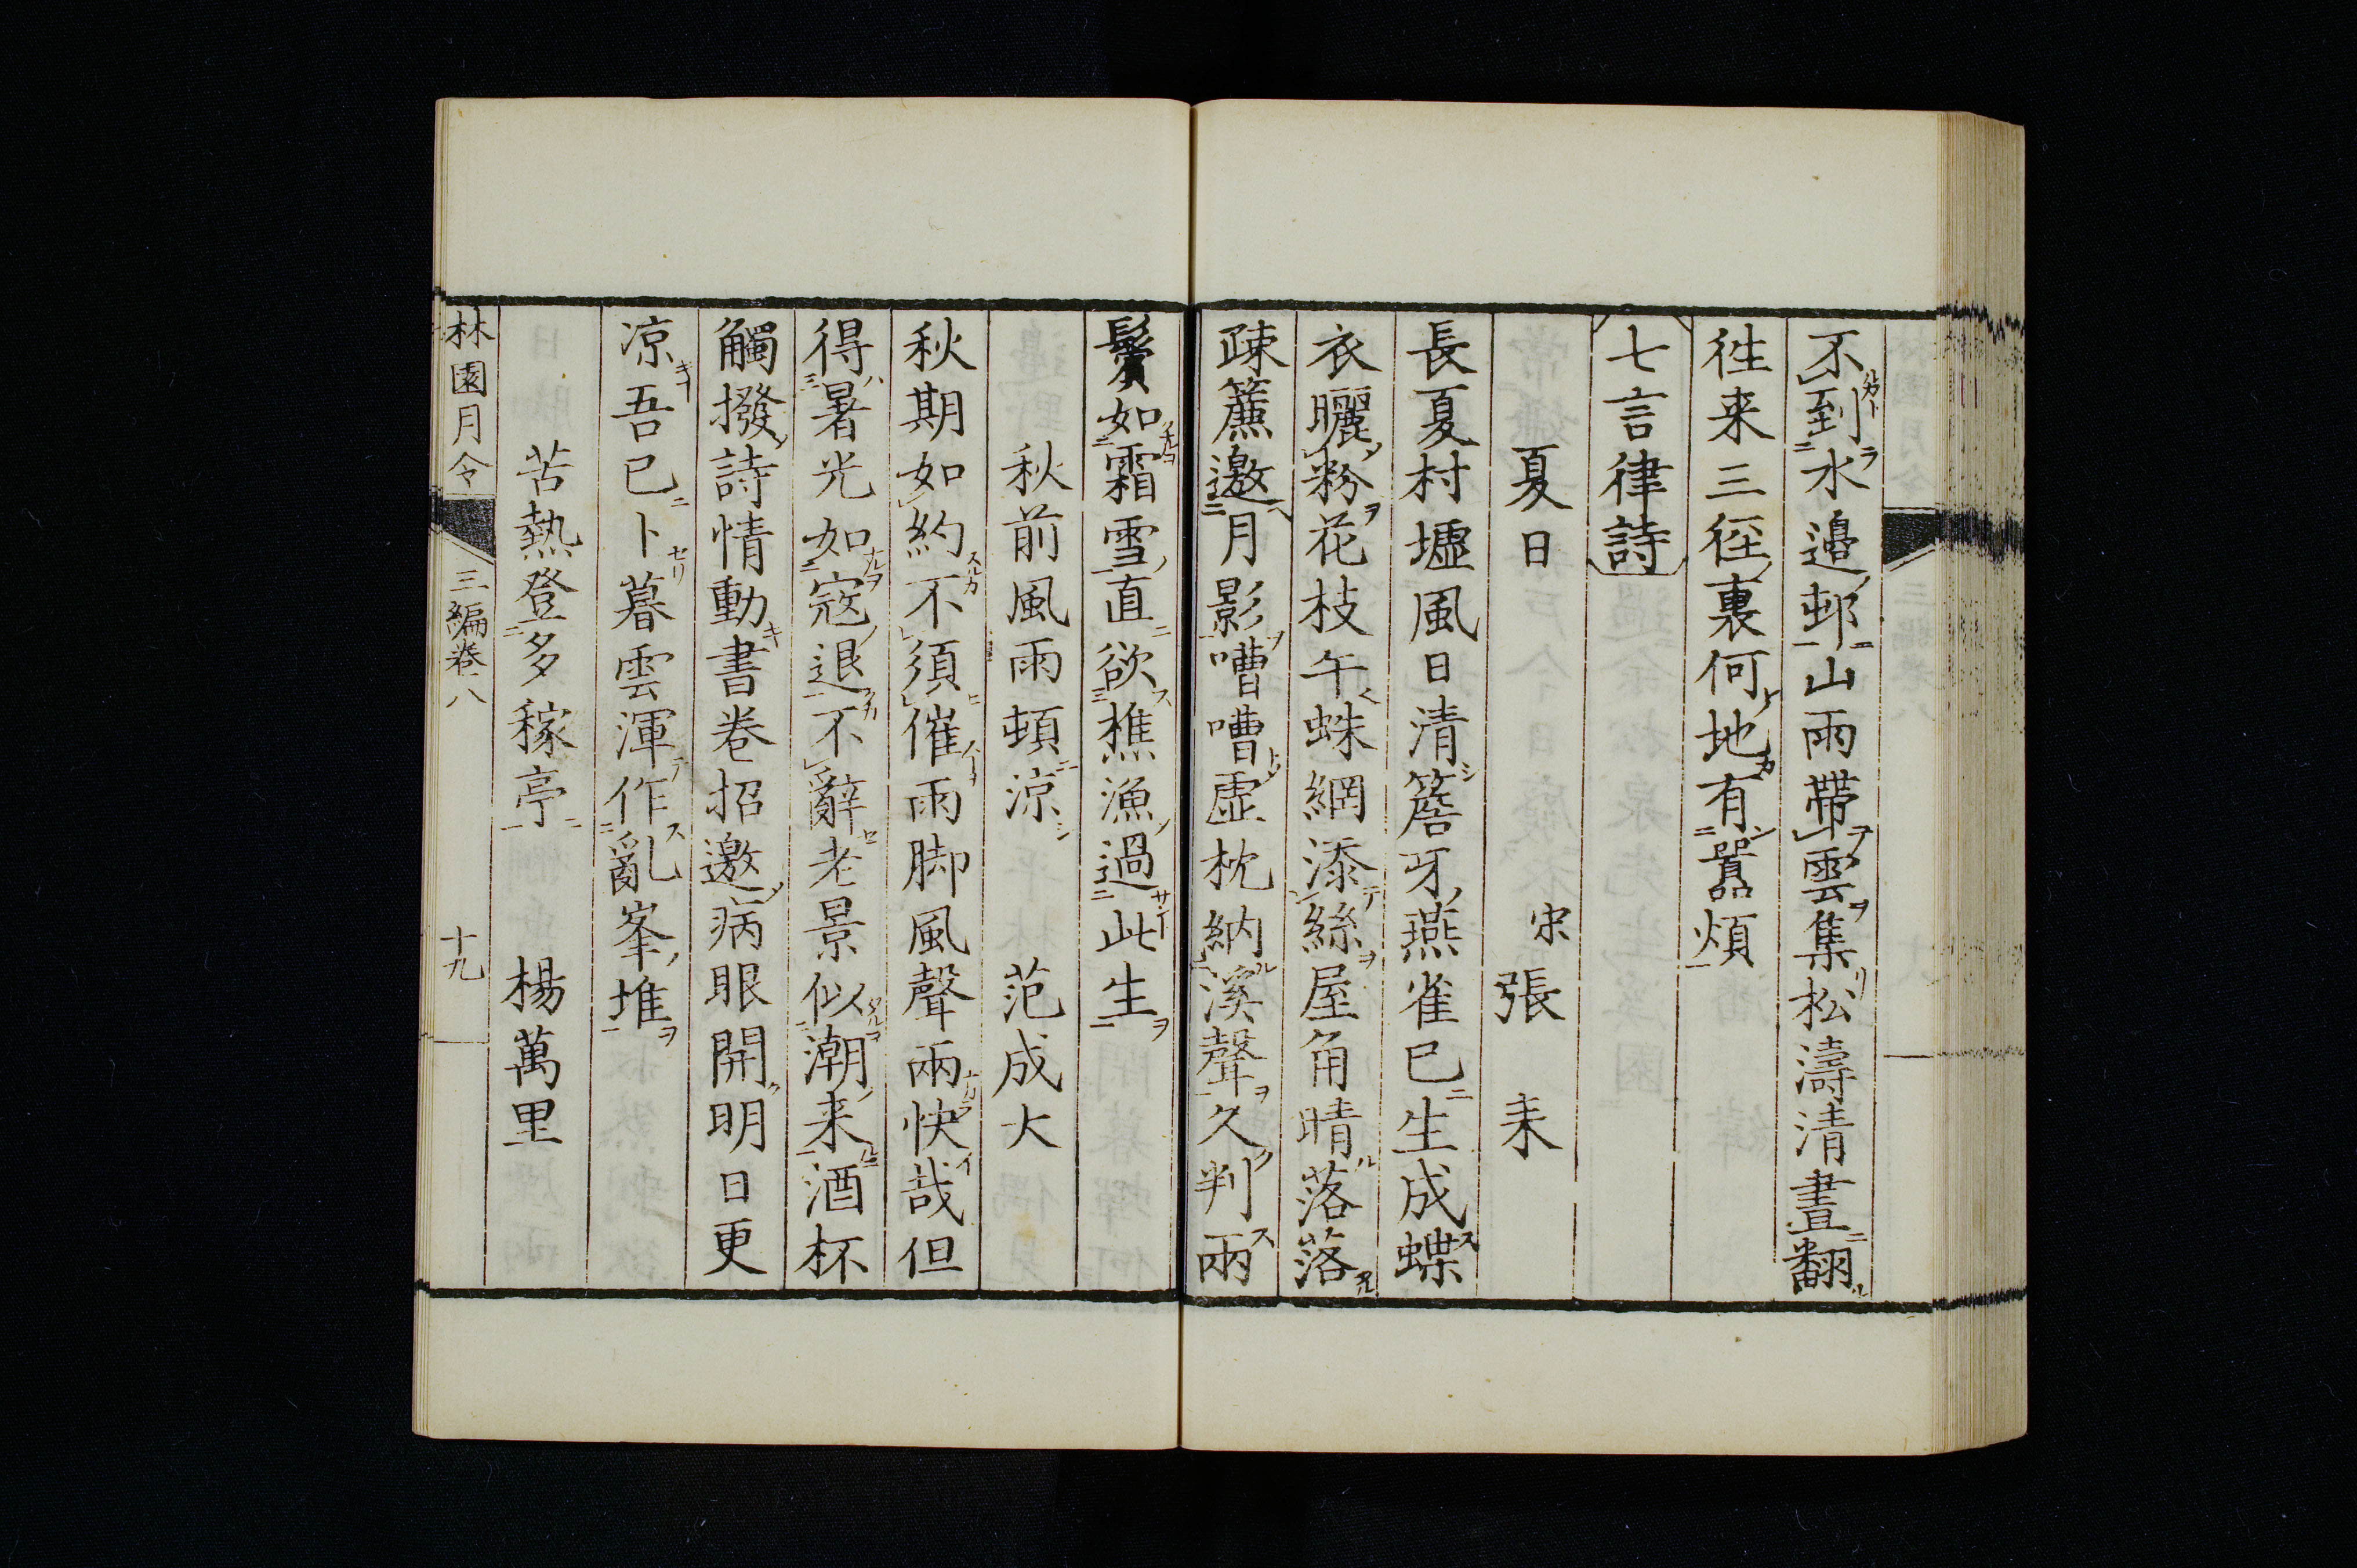 不到水邉邨山雨帶雲集松濤清晝翻
徃来三徑裏何地有囂煩
七言律詩
夏日 宋 張耒
長夏村墟風日清簷牙燕雀已生成蝶
衣曬粉花枝午蛛網添絲屋角晴落落
疎簾邀月影嘈嘈虚枕納溪聲久判兩
鬢如霜雪直欲樵漁過此生
秋前風雨頓凉 范成大
秋期如約不須催雨脚風聲兩快哉但
得暑光如寇退不辭老景似潮来酒杯
觸撥詩情動書卷招邀病眼開明日更
凉吾已卜暮雲渾作亂峯堆
苦熱登多稼亭 楊萬里
林園月令 三編卷八 十九